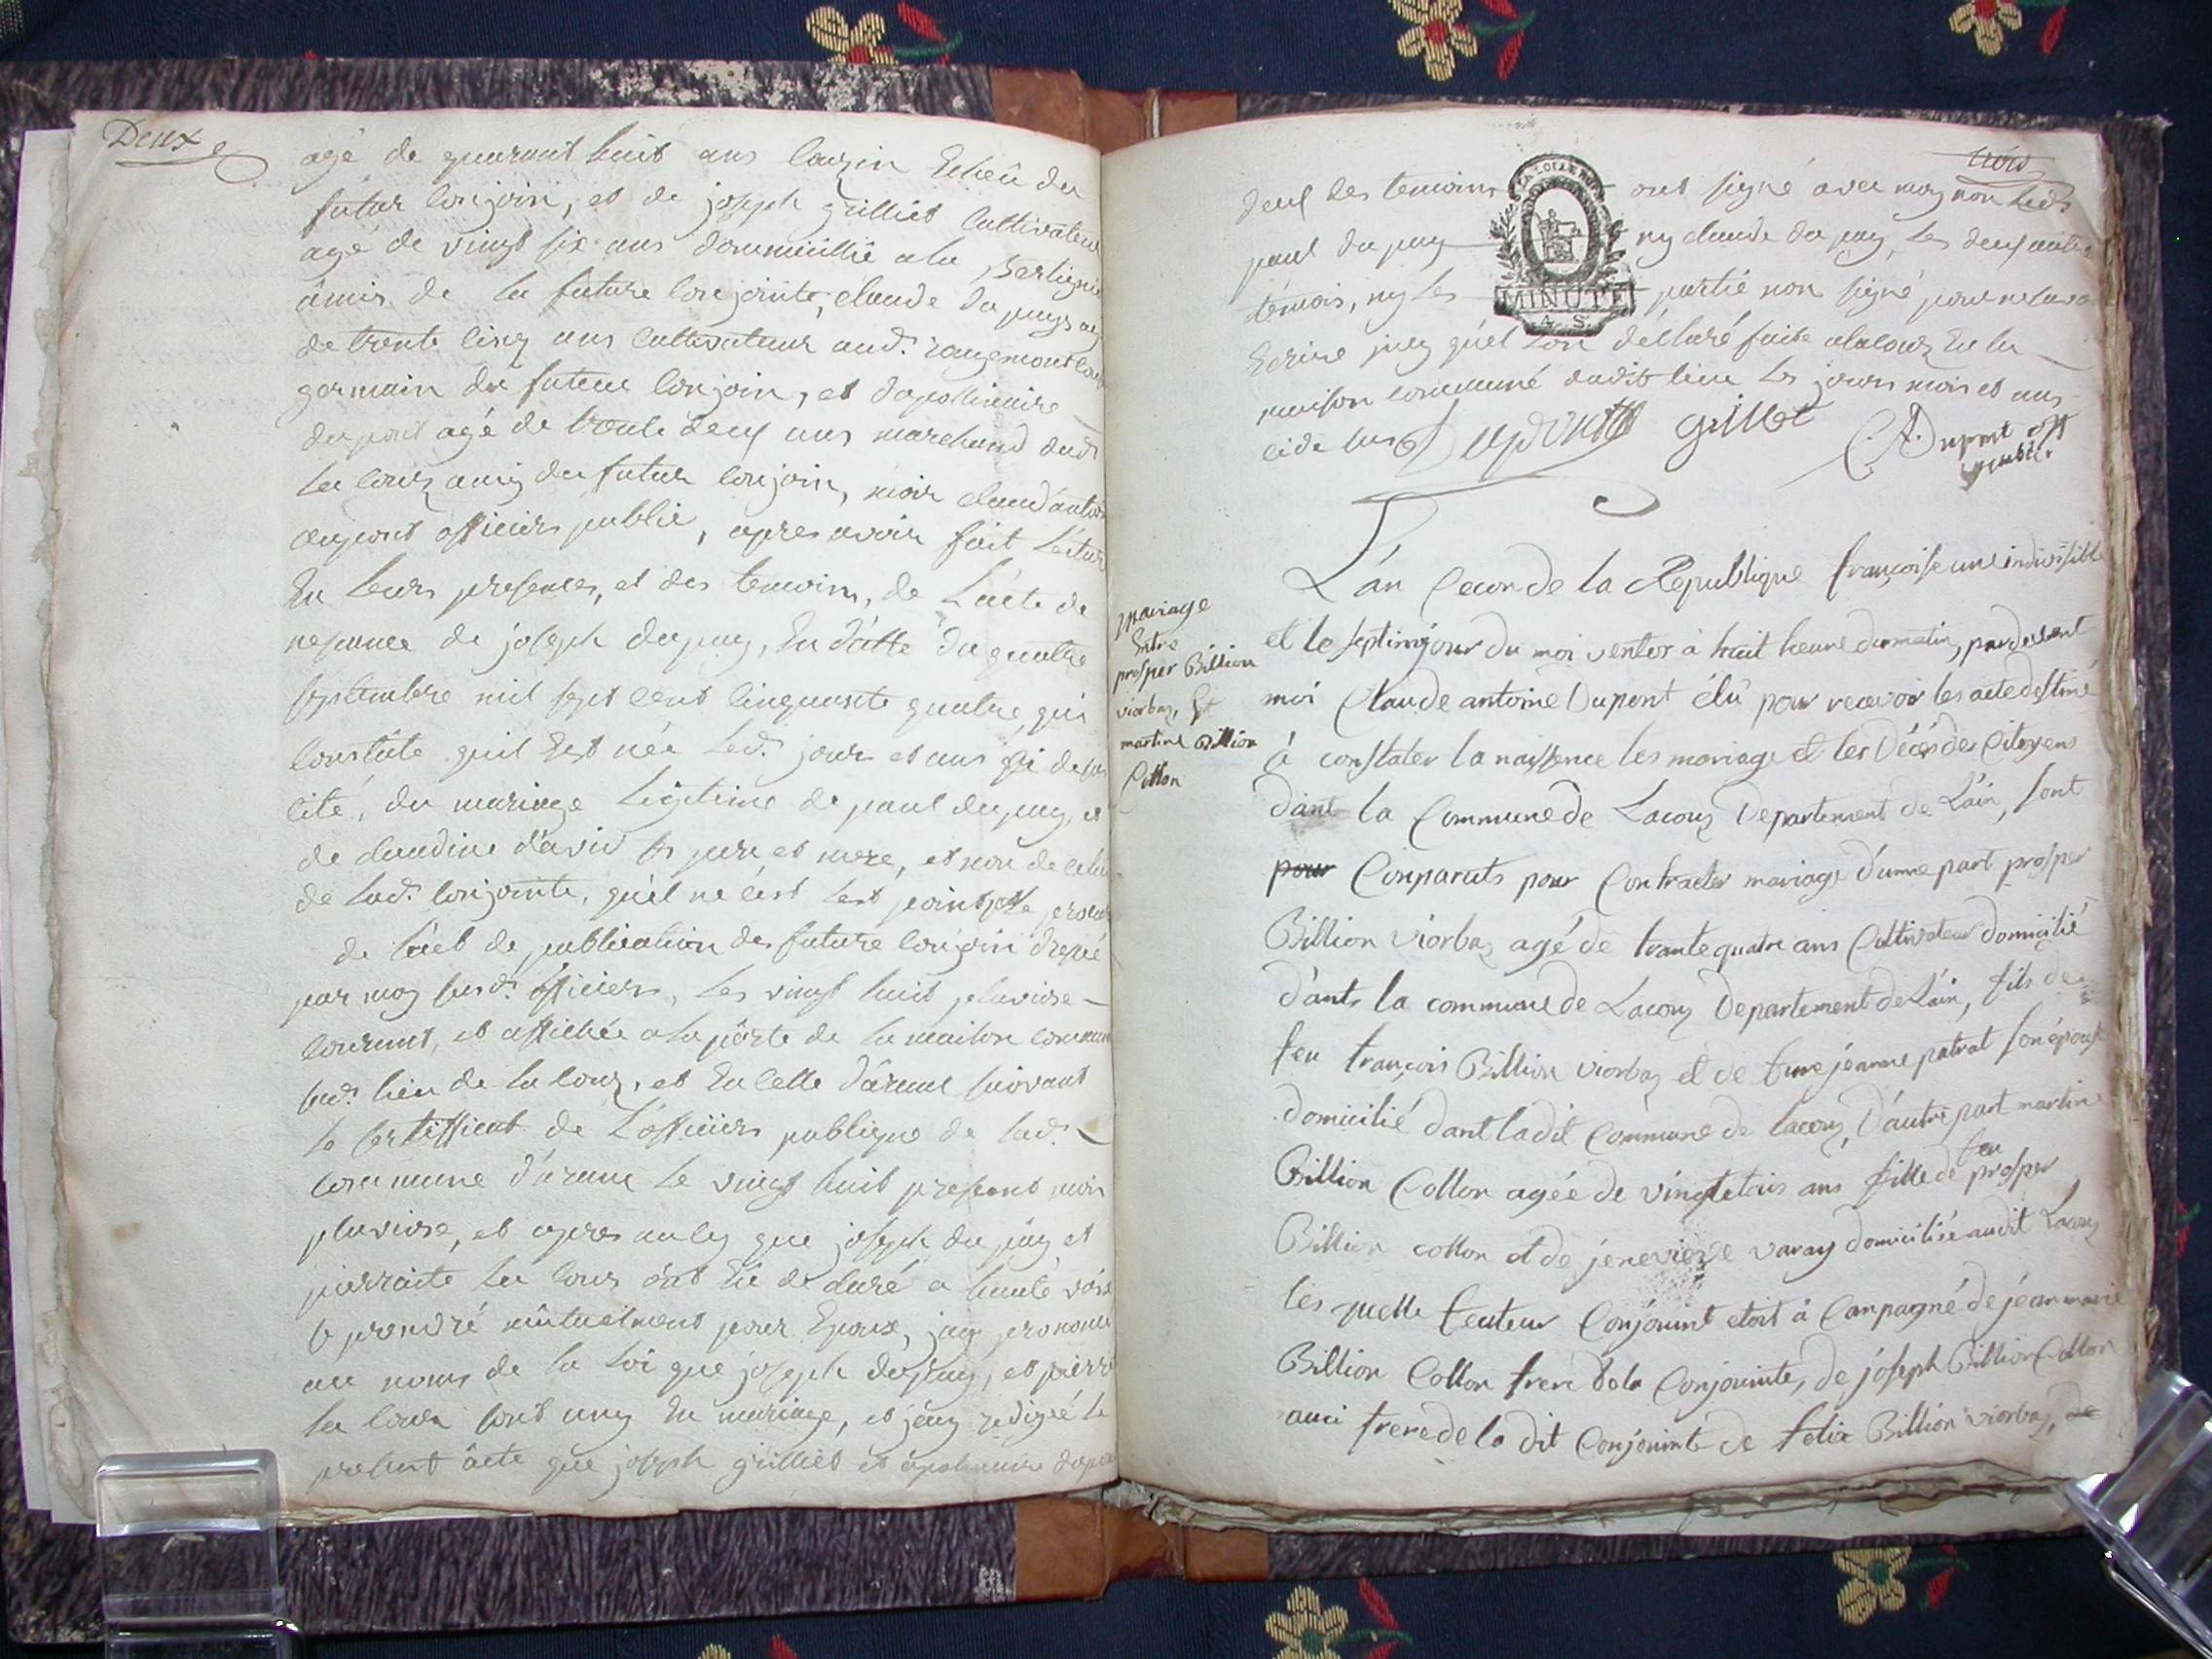 Deux
agé de quarant huit ans
futur conjoin, et de joseph grilliet cultivateur
agé de vingt six ans domicillié a la
âmis de la future conjointe, claude du puy
de trente cinq ans cultivateur aud. rougemont
germain du futeur conjoin, et dapollinaire
dupont agé de trente deux ans marchand dud.
la couz amy du futur conjoin, moir claud'antoi
dupont officier public, apres avoir fait lectur
En leurs presences, et des temoins, de L'acte de
nesance de joseph dupuy, En datte du quatre
septembre mil sept cent cinquante quatre, qui
constate quil Est née led. jour et ans
du mariage Legitime de paul dupuy, et
de claudine david ses pere et mere, et non de celui
de lad. conjointe, quel ne
de publication des future conjoin
par moy susd. officier, Les vingt huit pluviose
courant, et affichée a la pôrte de la maison commun
sud. lieu de la couz, et En celle d'aranc suivant
le certifficat de L'officier publique de lad.
commune d'aranc le vingt huit present mois
pluviose, et apres que joseph du puy et
la couz declaré a haute voix
se prendre mûtuelment pour Epoux, jay prononcé
au noms de la loi que joseph dupuy, et pierr
la couz sont uny En mariage, et jay redigré le
present âcte que joseph grilliet et apolinaire dupon
trois
deux des temoins ont signé avec moy non Led.
paul du puy ny claude du puy, les deux autre
témois, ny les partié non signé pour ne savo
Ecrire déclaré faite alacouz En la
maison communé dudit lieu Les jours mois et ans
MINUTE
A. S.
Dupont grillet C. A. Dupont off
public
mariage
Entre
prosper Billion
viorbaz, Et
martine Billion
Collon
L'an Second de la Republique françoise une indivisible
et le septimejour du moi ventos à huit heure dumatin, pardevant
moi Claude antoine Dupont élû pour recevoir les acte destiné
à constater la naissence les mariage et les Décès des Citoyens
dant la Commune de Lacouz Departement de L'ain, sont
pour Conparuts pour Contracter mariage d'unne part prosper
Billion viorbaz agé de trante quatre ans Cultivateur domicilié
d'ants la commune de Lacouz Departement de L'ain, fils de
feu françois Billion viorbaz et de fuue jeanne patrat son épouse
domicilié dant ladit Commune de lacouz, D'autre part martine
Billion Collon agée de vingtetrois ans fille de feu prosper
Billion collon et de jenevieve varay domiciliée audit Lacouz
les quelle feuteur Conjouint etoit à Compagné de jéan marie
Billion Collon frere dela Conjouinte, de joseph Billion Collon
auci frere de la dit Conjouinte de felix Billion viorbaz, de